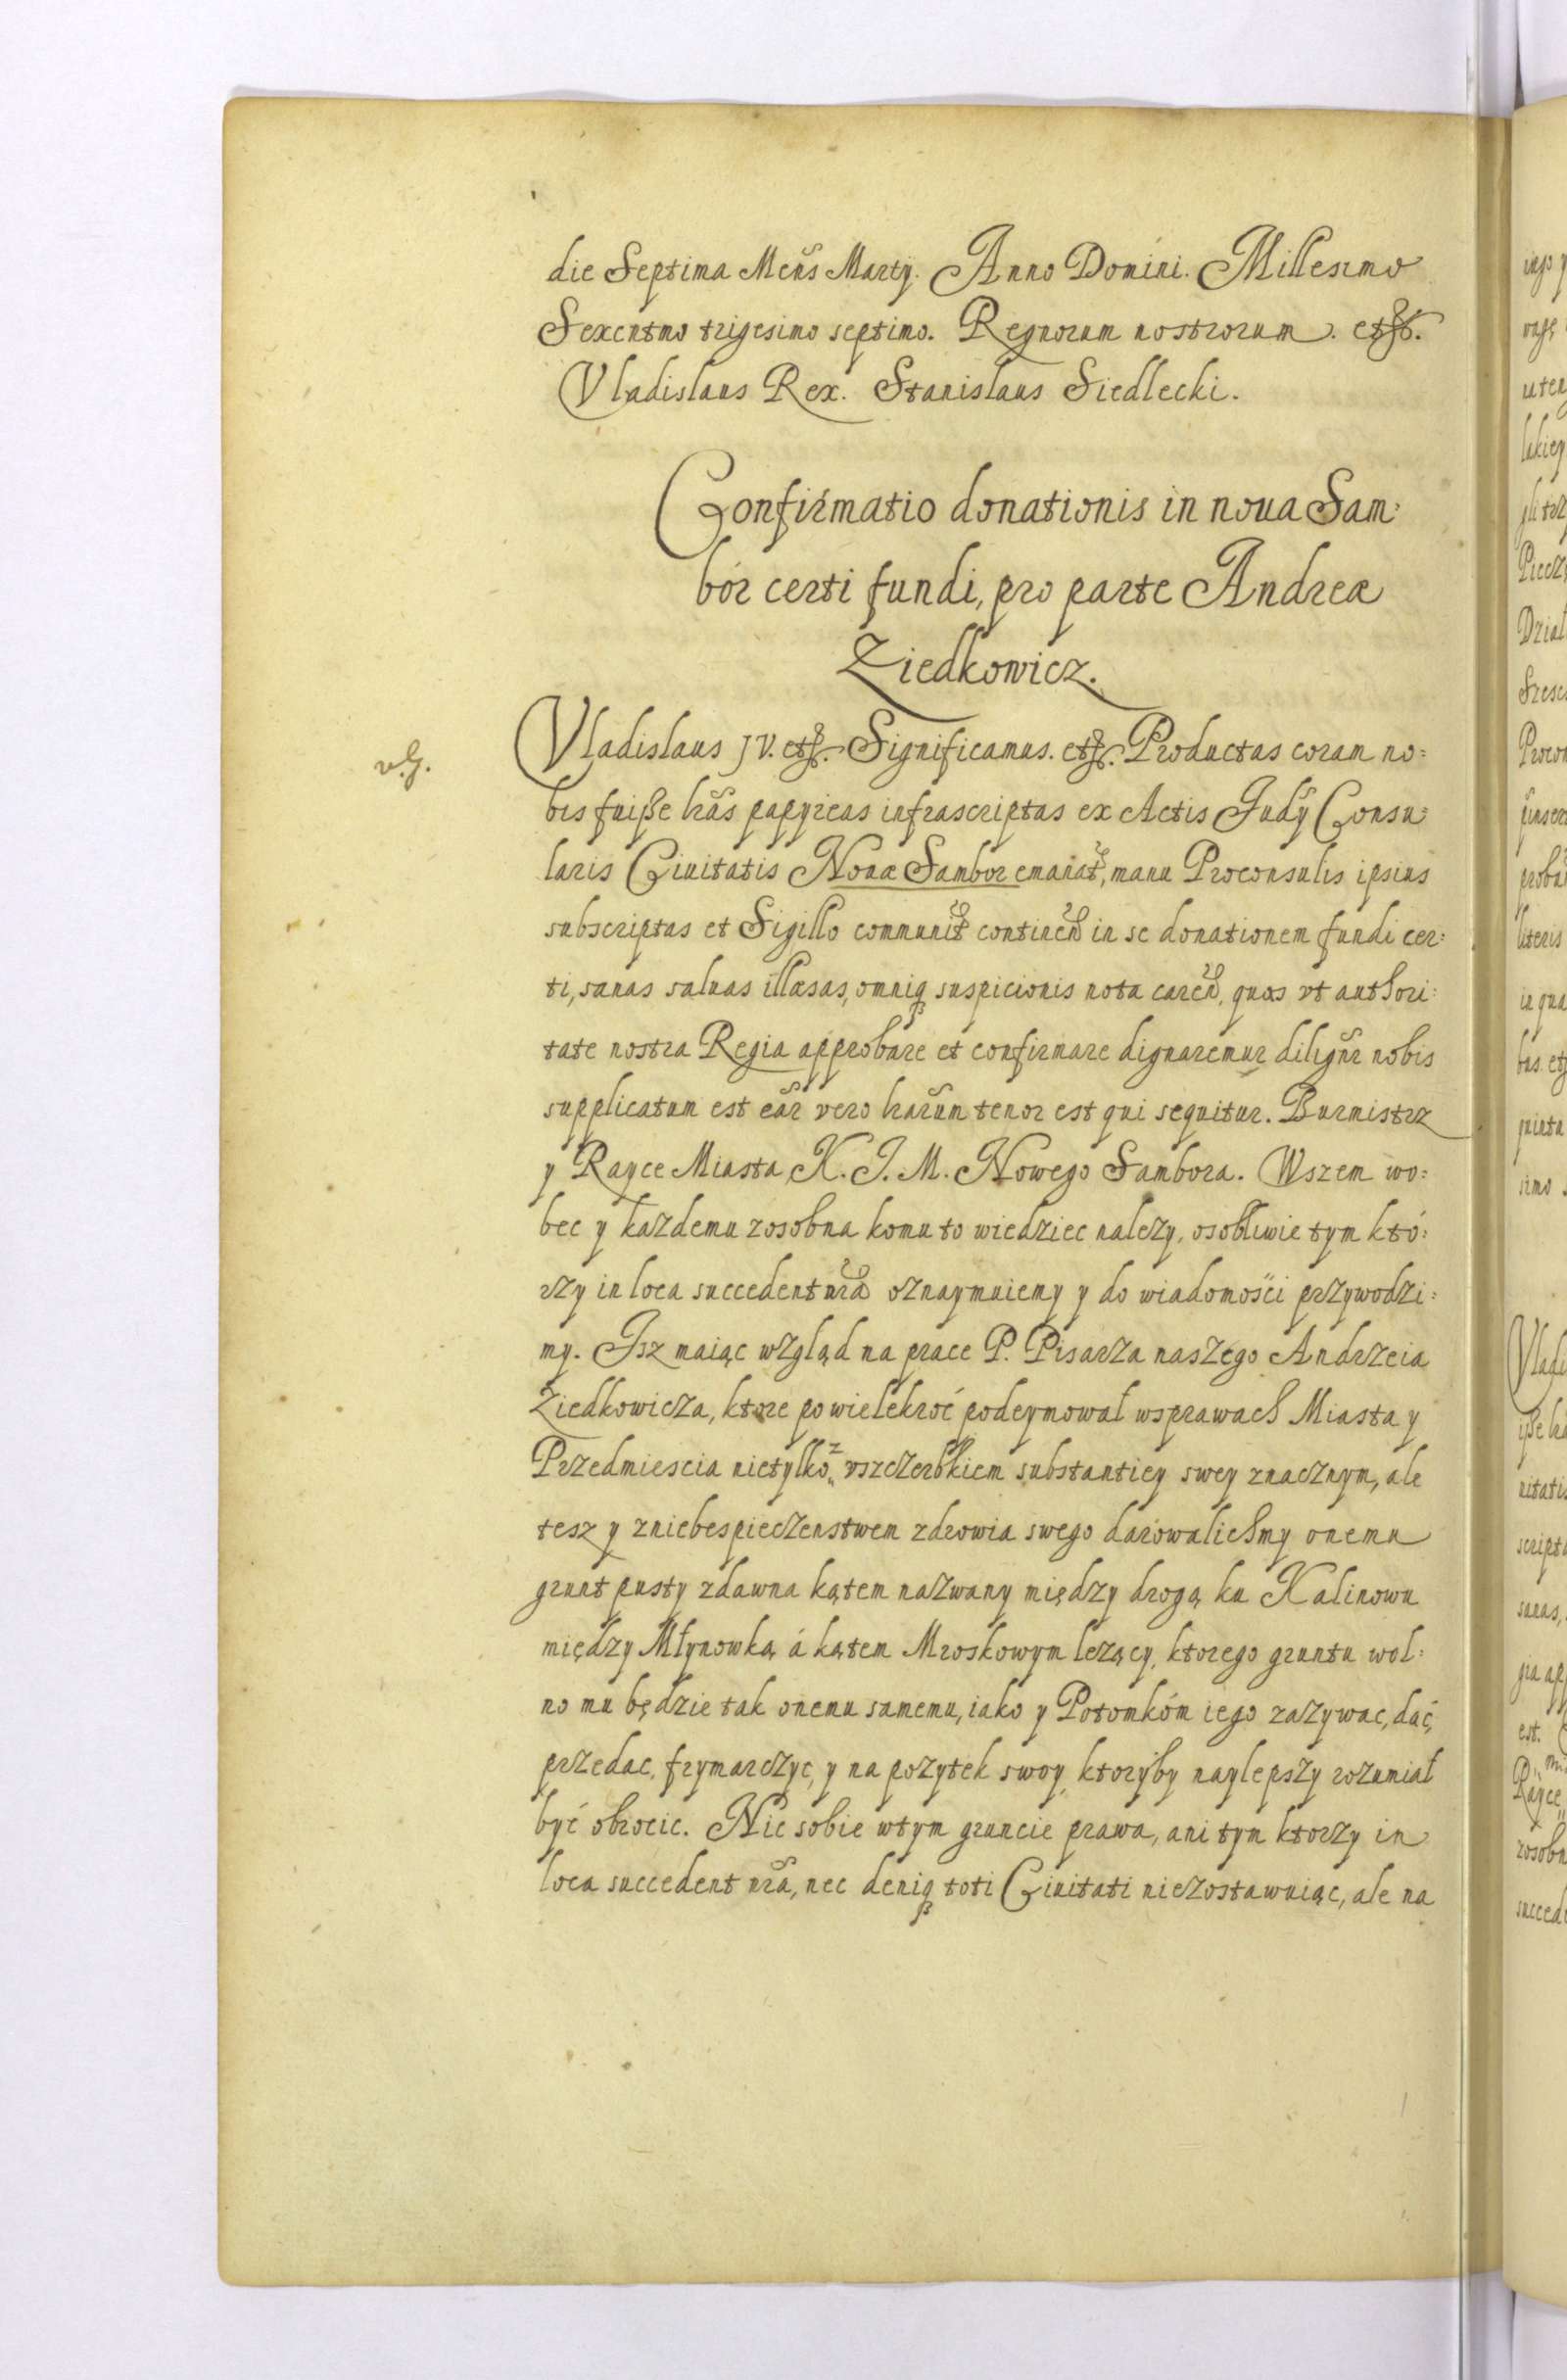 die Septima Mens̃ Martÿ. Anno Domini. Millesimo
Sexcntmo trigesimo septimo. Regnorum nostrorum. etc.
Vladislaus Rex. Stanislaus Siedlecki.
Confirmatio donationis in noua Sam:
bór certi fundi, pro parte Andreæ
Ziedkowicz.
v.g.
Vladislaus JV. etc. Significamus. etc. Productas coram no:
bis fuiße lr̃as papyreas infrascriptas ex Actis Judÿ Consu:
laris Ciuitatis Nouæ Sambor emanat̃, manu Proconsulis ipsius
subscriptas et Sigillo communit̃ contineñ in se donationem fundi cer:
ti, sanas saluas illæsas, omniq₃ suspicionis nota careñ, quas vt authori:
tate nostra Regia approbare et confirmare dignaremur diligñr nobis
supplicatum est eãr vero lrarũm tenor est qui sequitur. Burmistrz
y Rayce Miasta K. J. M. Nowego Sambora. Wszem wo:
bec y kazdemu zosobna komu to wiedziec nalezy, osobliwie tym któ:
rzy in loca succedent nrã oznaymuiemy y do wiadomości przywodzi:
my. Jsz maiąc wzgląd na prace P. Pisarza naszego Andrzeia
Ziedkowicza, ktore powielekroć podeymował wsprawach Miasta y
Przedmiescia nietylko z vszczerbkiem substantiey swey znacznym, ale
tesz y zniebespieczenstwem zdrowia swego darowalichmy onemu
grunt pusty zdawna kątem nazwany między drogą ku Kalinowu
między Młynowką á kątem Mroskowym lezący, ktorego gruntu wol:
no mu będzie tak onemu samemu, iako y Potomkóm iego zazywac, dać,
przedac, frymarczyc, y na pozytek swoy, ktoryby naylepszy rozumiał
być obrocic. Nic sobie wtym gruncie prawa, ani tym ktorzy in
loca succedent nrã, nec deniq₃ toti Ciuitati niezostawuiąc, ale na